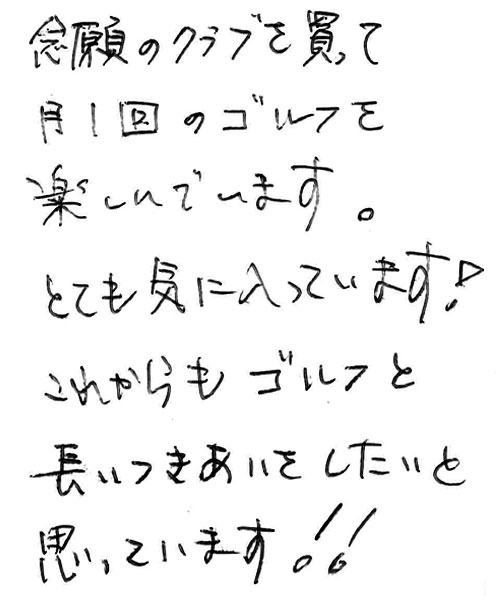 念願のクラブを買って
月1回のゴルフを
楽しんでいます。
とても気に入っています!
これからもゴルフと
長いつきあいをしたいと
思っています!!